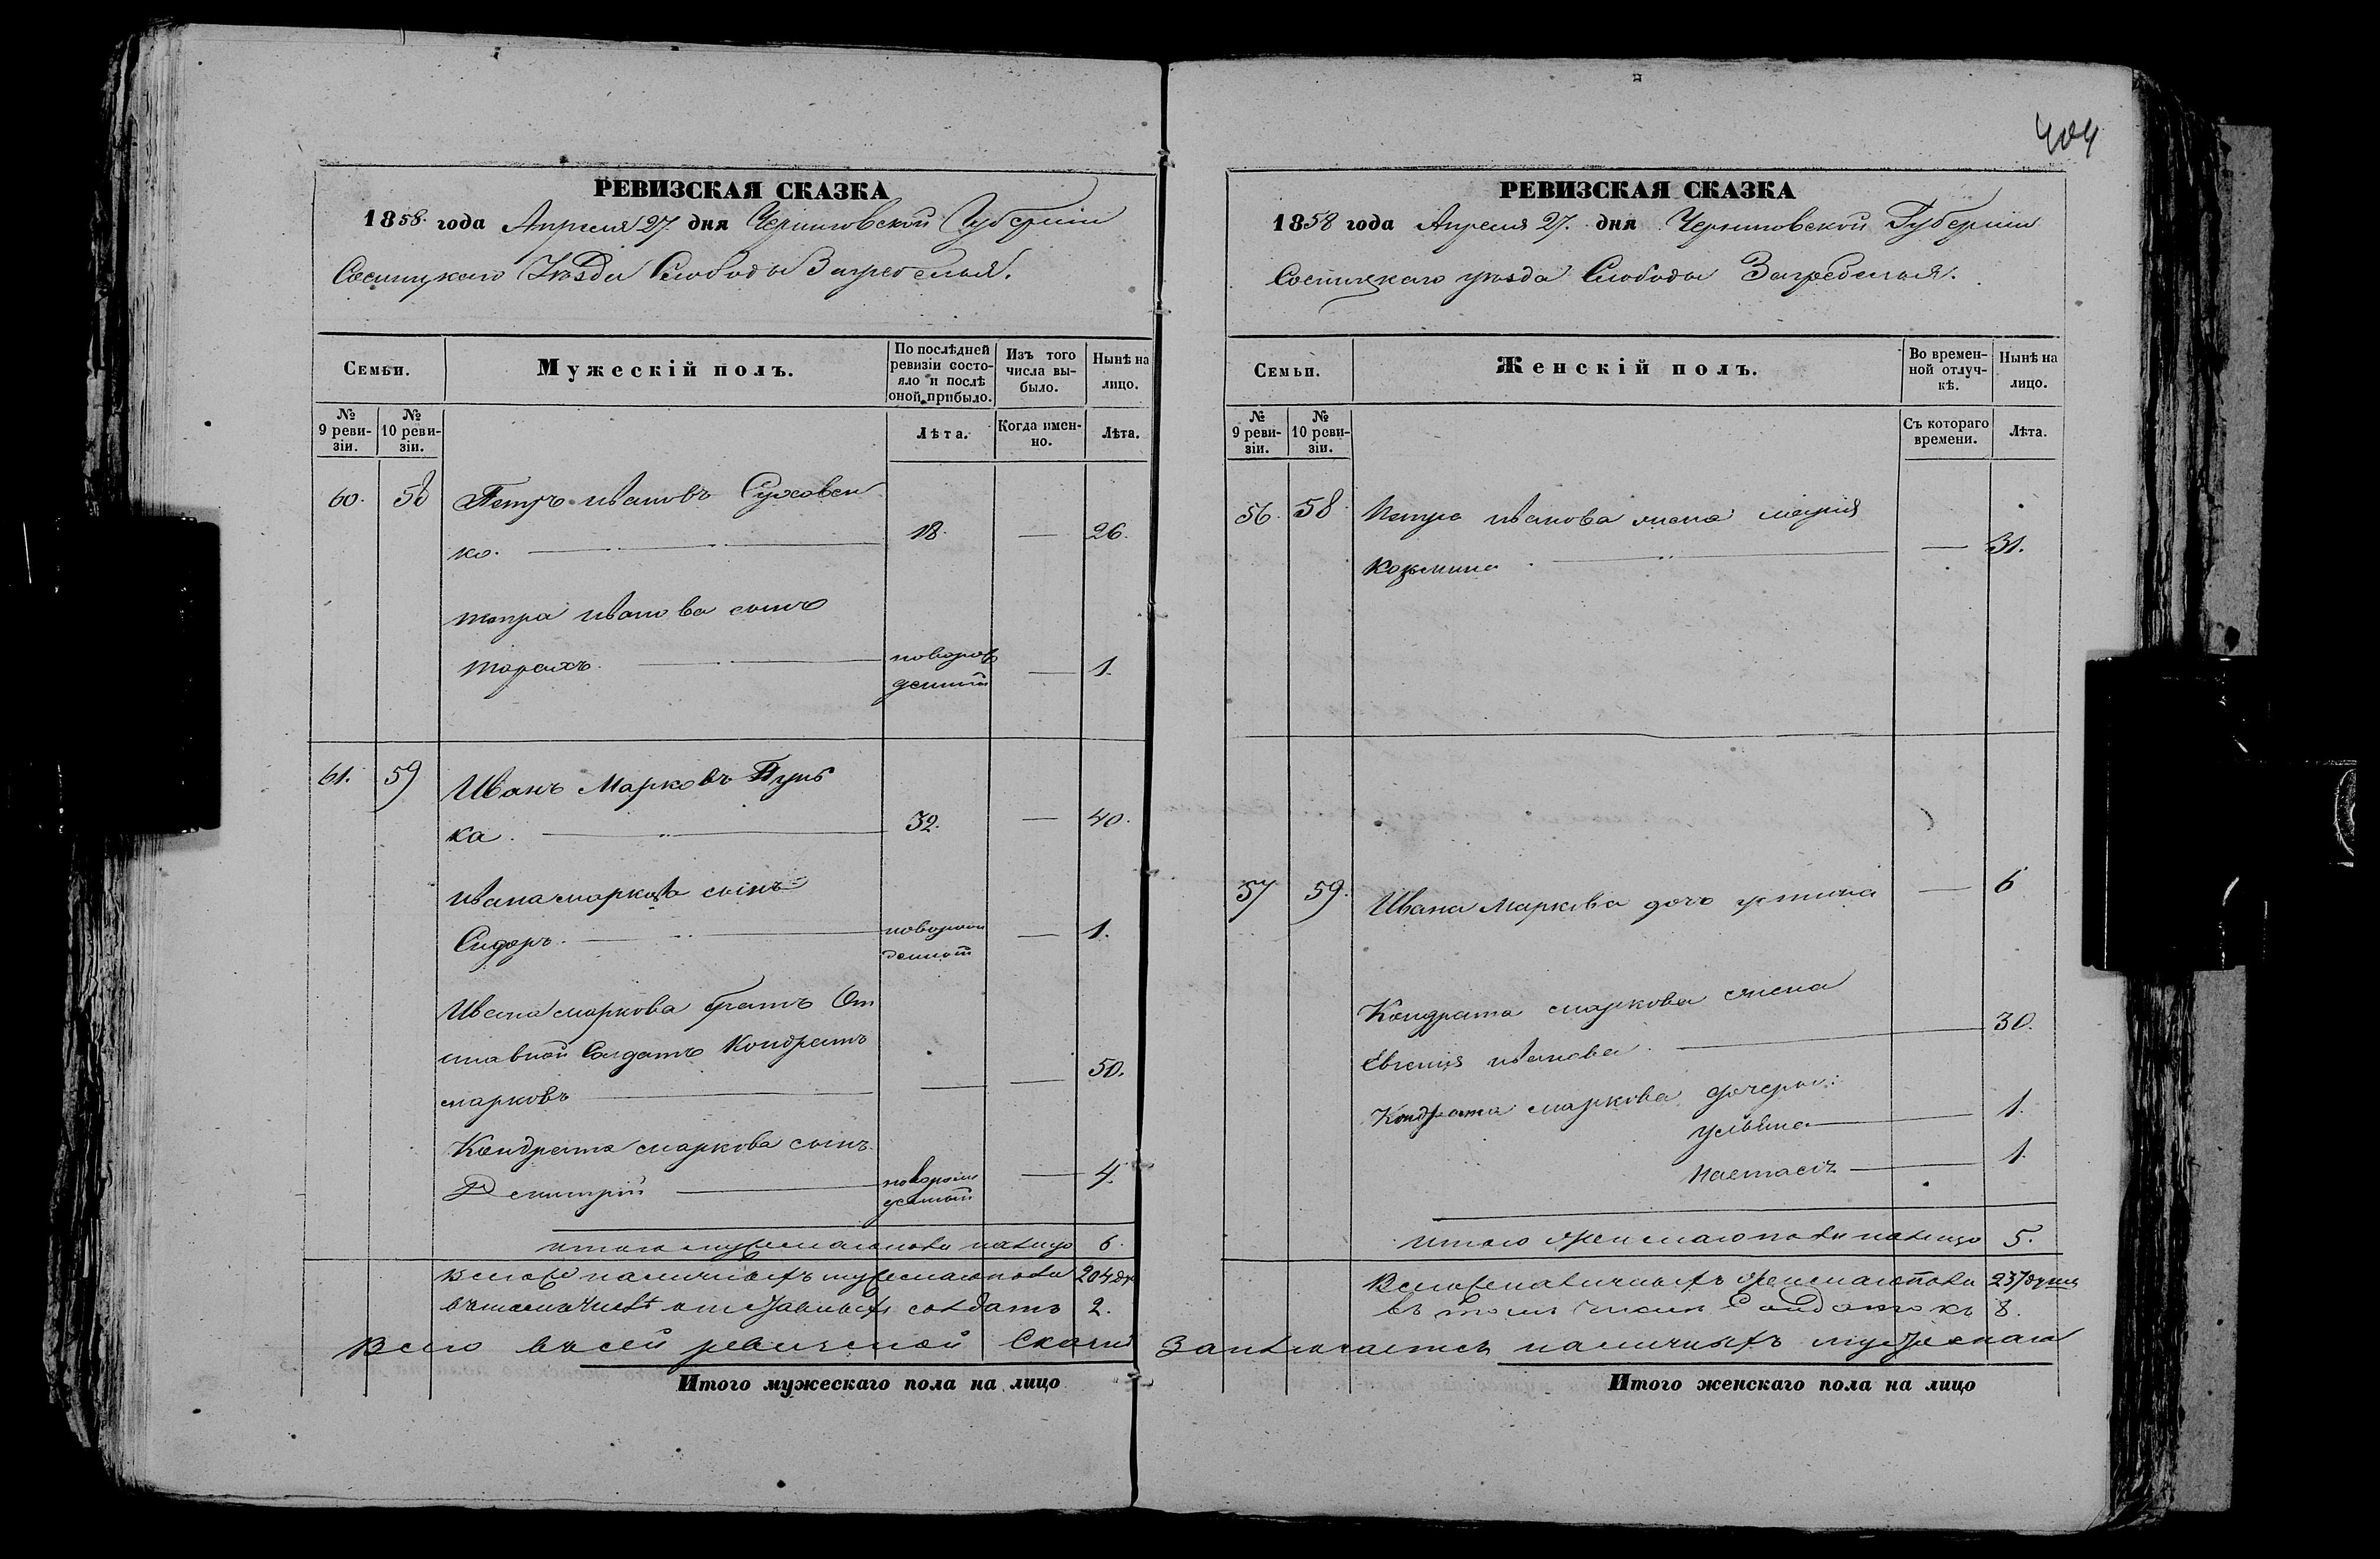 РЕВИЗСКАЯ СКАЗКА
1858 года Апреля 27 дня Черниговской Губернии
Сосницкаго Уѣзда Слободы Загребелья.
Семьи.
Мужескій полъ.
По послѣдней ревизіи состояло и послѣ оной прибыло.
Изъ того числа выбыло.
Нынѣ на лицо.
№ 9 ревизіи.
№ 10 ревизіи.
Лѣта.
Когда именно.
Лѣта.
60. 58 Петръ Ивановъ Суховен
ко. 18. — 26.
Петра Иванова сынъ
Тарасъ. новорож
денный — 1.
61. 59 Иванъ Марковъ Пунь
ка. 32. — 40.
Ивана Маркова сынъ
Сидоръ. новорож
денный — 1.
Ивана Маркова братъ От
ставной Солдатъ Кондратъ
Марковъ — — 50.
Кондрата Маркова сынъ
Дмитрій новорож
денный — 4.
Итого мужескаго пола на лицо 6.
Всего наличныхъ мужескаго пола 204 ду
въ томъ числѣ отставныхъ солдатъ 2.
Всего въ сей ревизской Сказкѣ
Итого мужескаго пола на лицо
404
РЕВИЗСКАЯ СКАЗКА
1858 года Апреля 27. дня Черниговской Губернии
Сосницкаго уѣзда Слободы Загребелья.
Семьи.
Женскій полъ.
Во временной отлучкѣ.
Нынѣ на лицо.
№ 9 ревизіи.
№ 10 ревизіи.
Съ котораго времени.
Лѣта.
56. 58. Петра Иванова жена Марія
Козьмина — 31.
57 59. Ивана Маркова дочь Устина — 6
Кондрата Маркова жена
Евгенія Иванова. 30.
Кондрата Маркова дочери:
Ульяна 1.
Настасія 1.
Итого женскаго пола на лицо 5.
Всего наличныхъ женскаго пола 237 душ
въ томъ числѣ Солдатокъ 8.
Заключается наличныхъ мужескаго
Итого женскаго пола на лицо